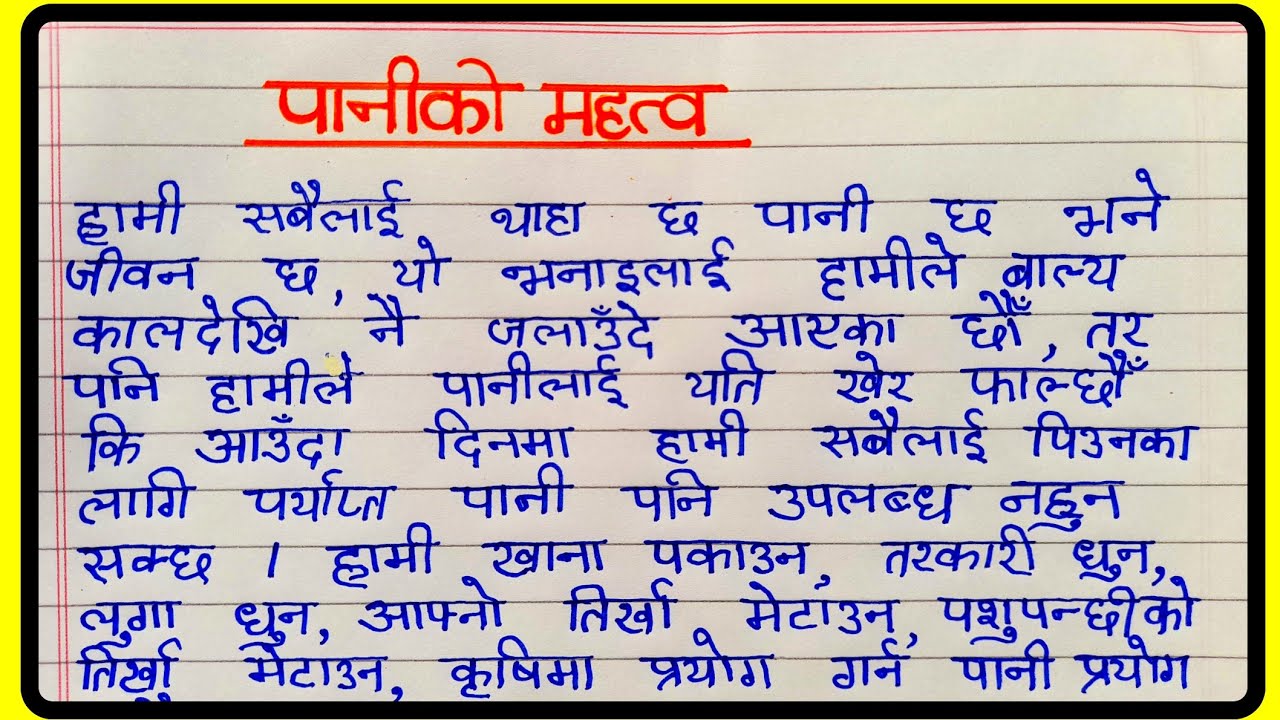 पानीको महत्व
हामी सबैलाई थाहा छ पानी छ भने
जीवन छ, यो भनाइलाई हामीले बाल्य
कालदेखि नै जलाउँदे आएका छौँ, तर
पनि हामीले पानीलाई यति खेर फाल्छौँ
कि आउँदा दिनमा हामी सबैलाई पिउनका
लागि पर्याप्त पानी पनि उपलब्ध नहुन
सक्छ । हामी खाना पकाउन, तरकारी धुन,
लुगा धुन, आफ्नो तिर्खा मेटाउन, पशुपन्छीको
तिर्खा मेटाउन, कृषिमा प्रयोग गर्न पानी प्रयोग